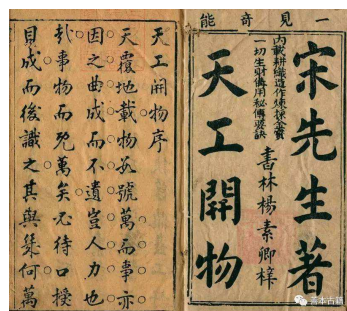 一見奇能
宋先生著
內載耕織造作煉採金寶
一切生財備用秘傳要訣
書林楊素卿梓
天工開物
天工開物序
天覆地載物數號萬而事亦
因之曲成而不遺豈人力也
哉事物而旣萬矣必待口授
目成而後識之其與幾何萬
善本古籍